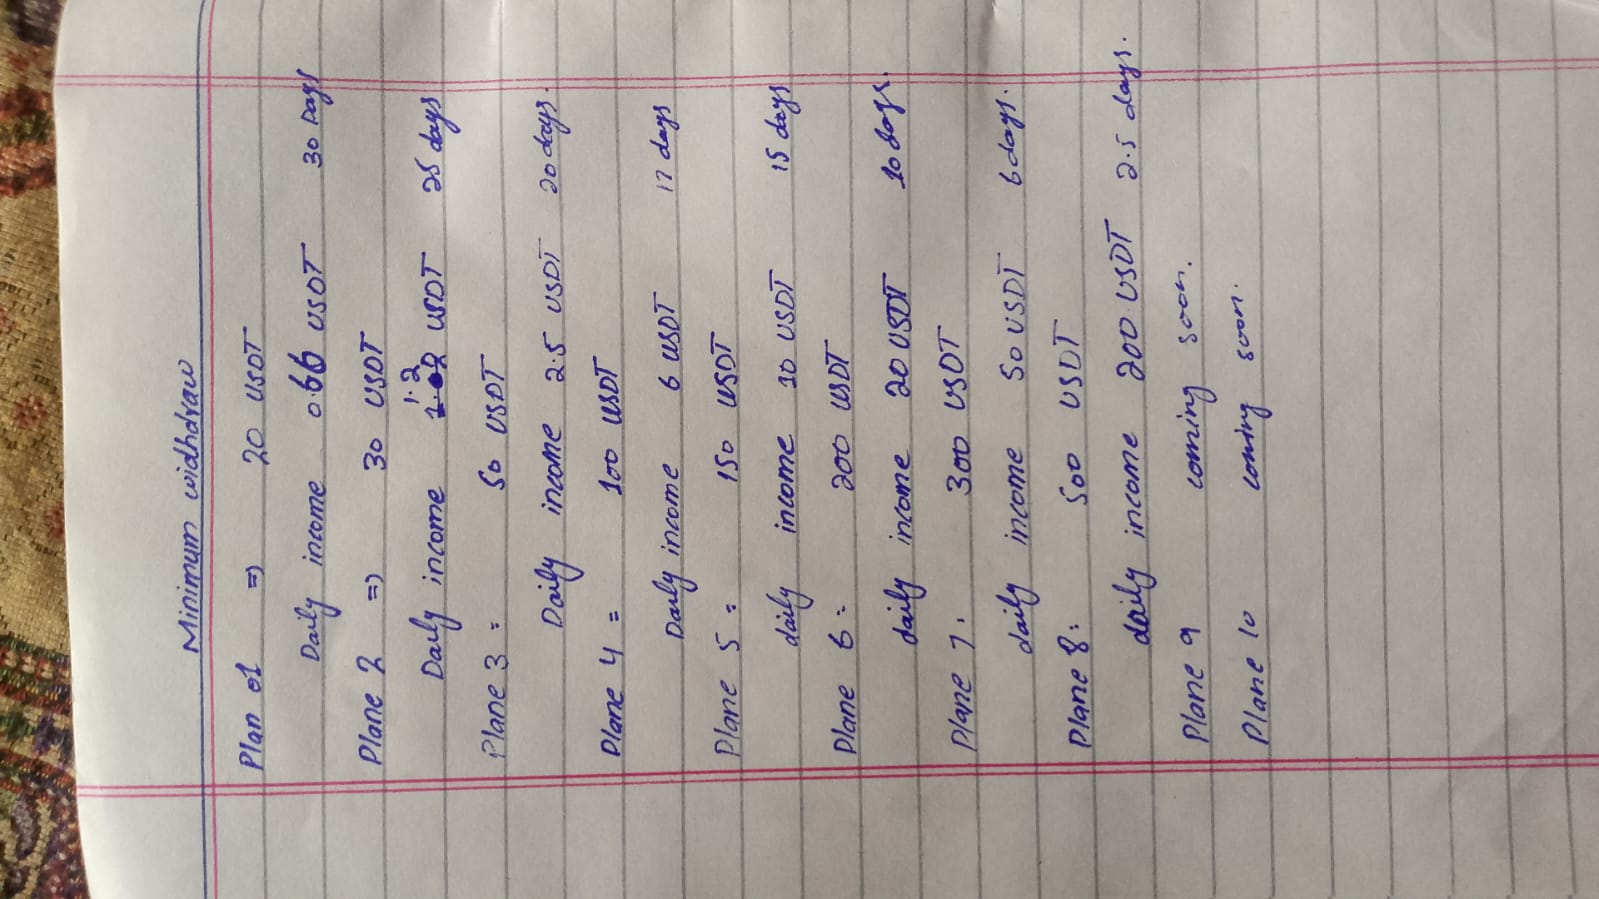 Minimum widhdraw
Plan 01 => 20 USDT
Daily income 0.66 USDT 30 Days
Plane 2 => 30 USDT
Daily income 1.2 USDT 25 days
Plane 3 = 50 USDT
Daily income 2.5 USDT 20 days.
Plane 4 = 100 USDT
Daily income 6 USDT 17 days
Plane 5 = 150 USDT
daily income 10 USDT 15 days
Plane 6 = 200 USDT
daily income 20 USDT 10 days.
Plane 7. 300 USDT
daily income 50 USDT 6 days.
Plane 8. 500 USDT
daily income 200 USDT 2.5 days.
Plane 9 coming soon.
Plane 10 coming soon.